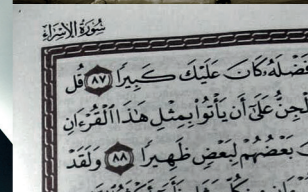 سُورَةُ الإِسْرَاءِ
فَضْلَهُۥ كَانَ عَلَيْكَ كَبِيرًا ٨٧ قُل
لْجِنُّ عَلَىٰٓ أَن يَأْتُوا۟ بِمِثْلِ هَٰذَا ٱلْقُرْءَانِ
بَعْضُهُمْ لِبَعْضٍ ظَهِيرًا ٨٨ وَلَقَدْ